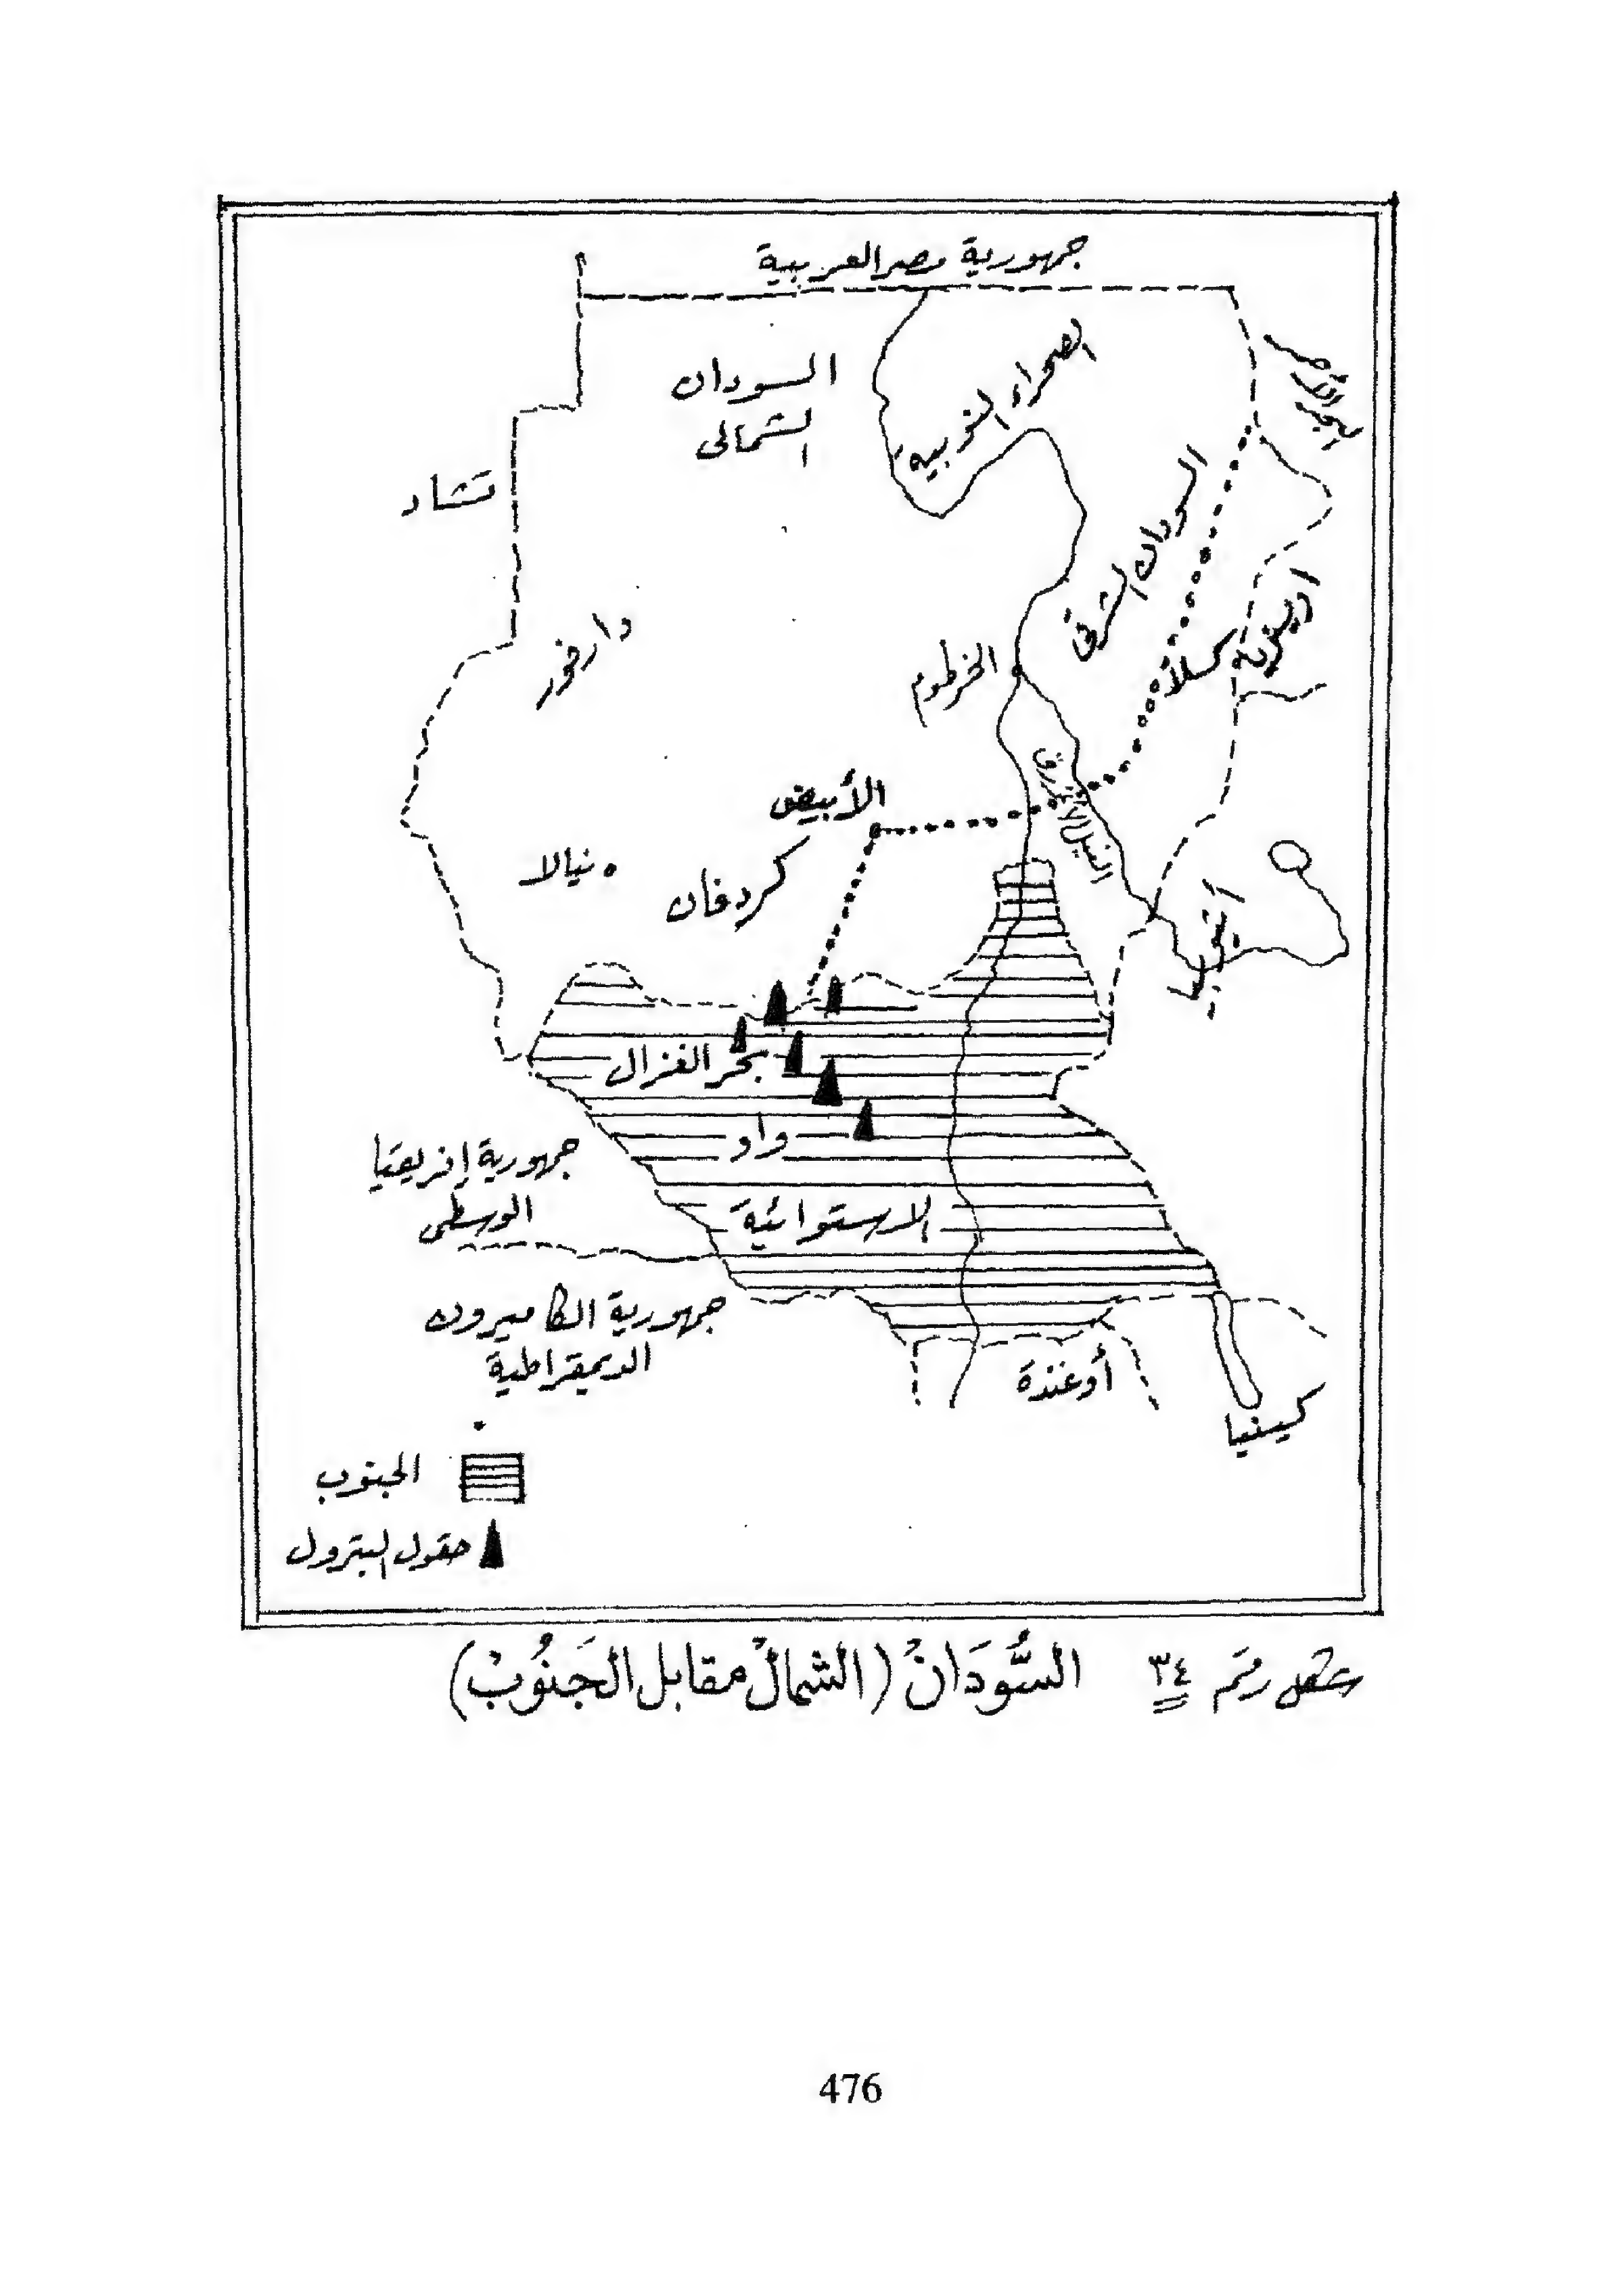 جمهورية مصر العربية
الصحراء النوبية
البحر الأحمر
السودان
الشمالى
تشاد
السودان الشرقى
دارفور
الخرطوم
كسلا
النيل الأزرق
الأبيض
نيالا
كردفان
أثيوبيا
بحر الغزال
واو
جمهورية إفريقيا
الوسطى
الاستوائية
جمهورية الكاميرون
الديمقراطية
أوغندة
كينيا
الجنوب
حقول البترول
شكل رقم ٣٤ السُّودَانْ (الشمالْ مقابل الجَنُوبْ)
476